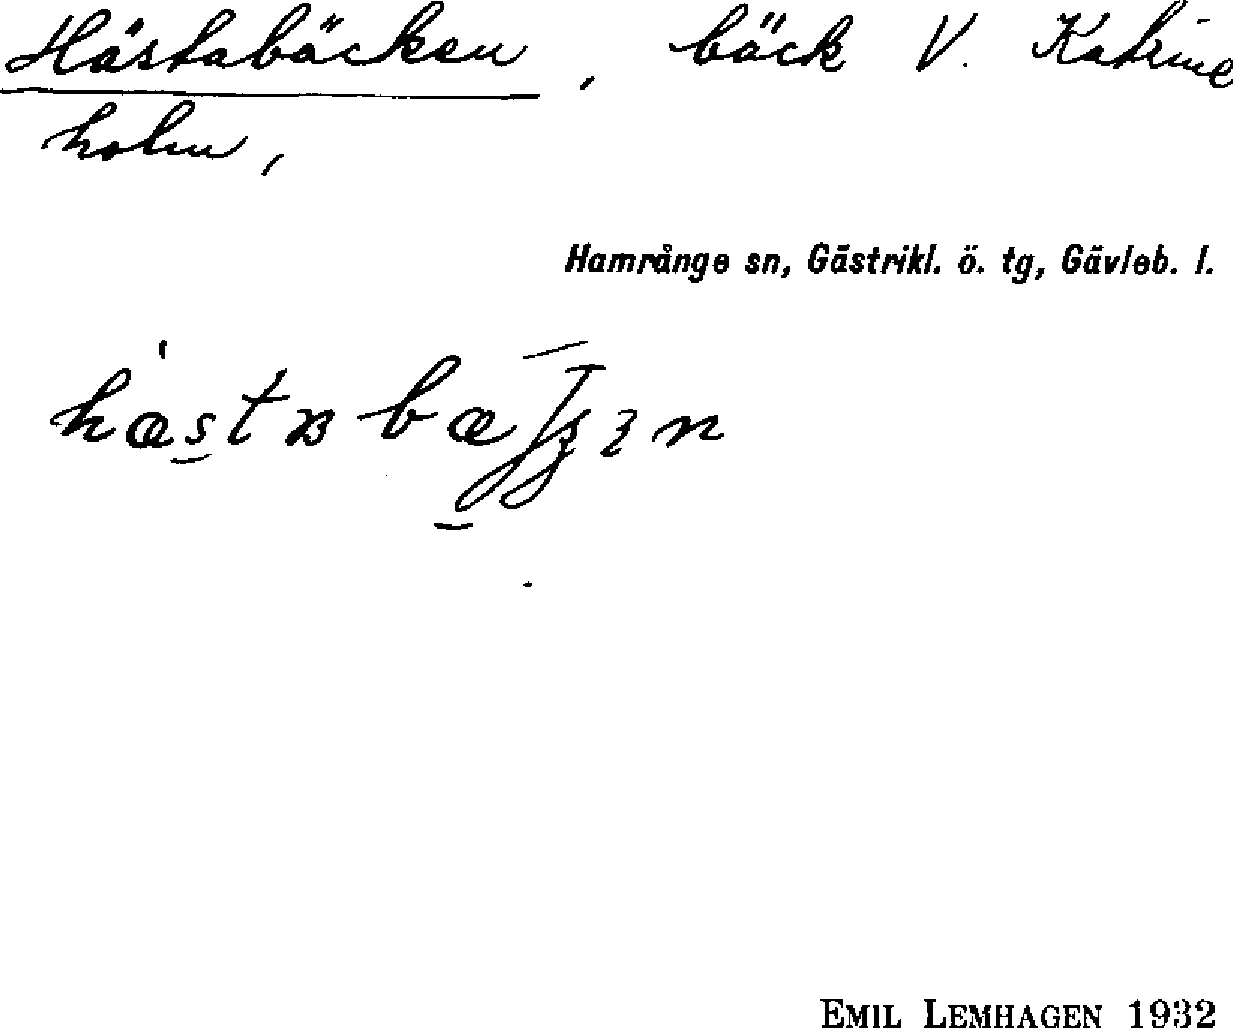 Hästabäcken, bäck V. Katrine
holm,
Hamrånge sn, Gästrikl. ö. tg, Gävleb. l.
EMIL LEMHAGEN 1932